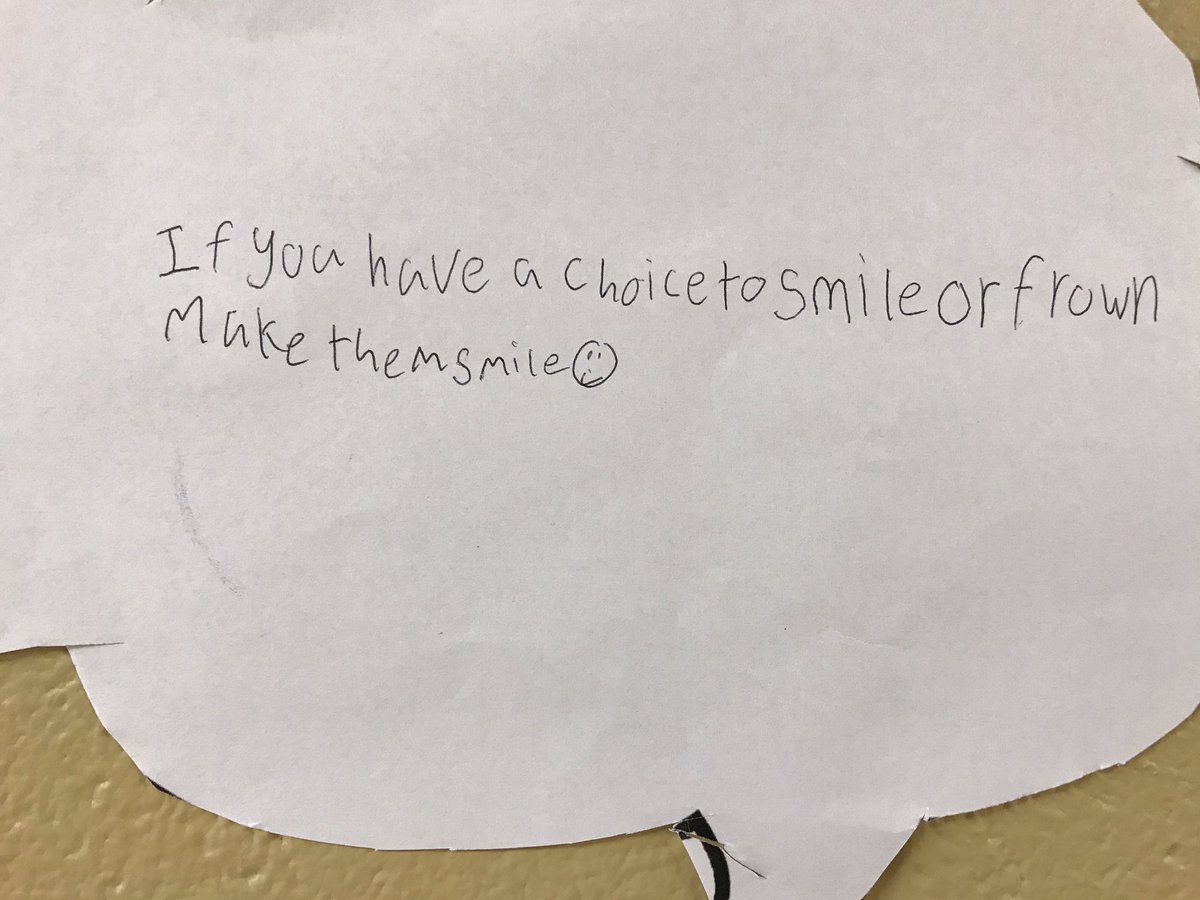 If you have a choice to smile or frown
Make them smile☺